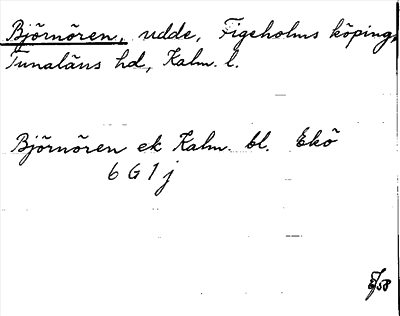 Björnören, udde, Figeholms köping,
Tunaläns hd, Kalm. l.
Björnören ek Kalm. bl. Ekö
6 G 1 j